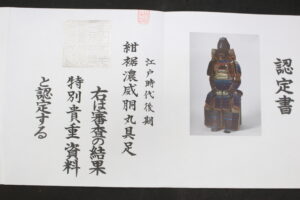 認定書
江戸時代後期
紺裾濃威胴丸具足
右は審査の結果
特別貴重資料
と認定する